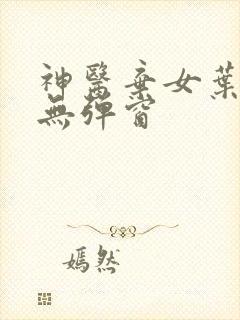 神醫棄女葉
無彈窗
嫣然